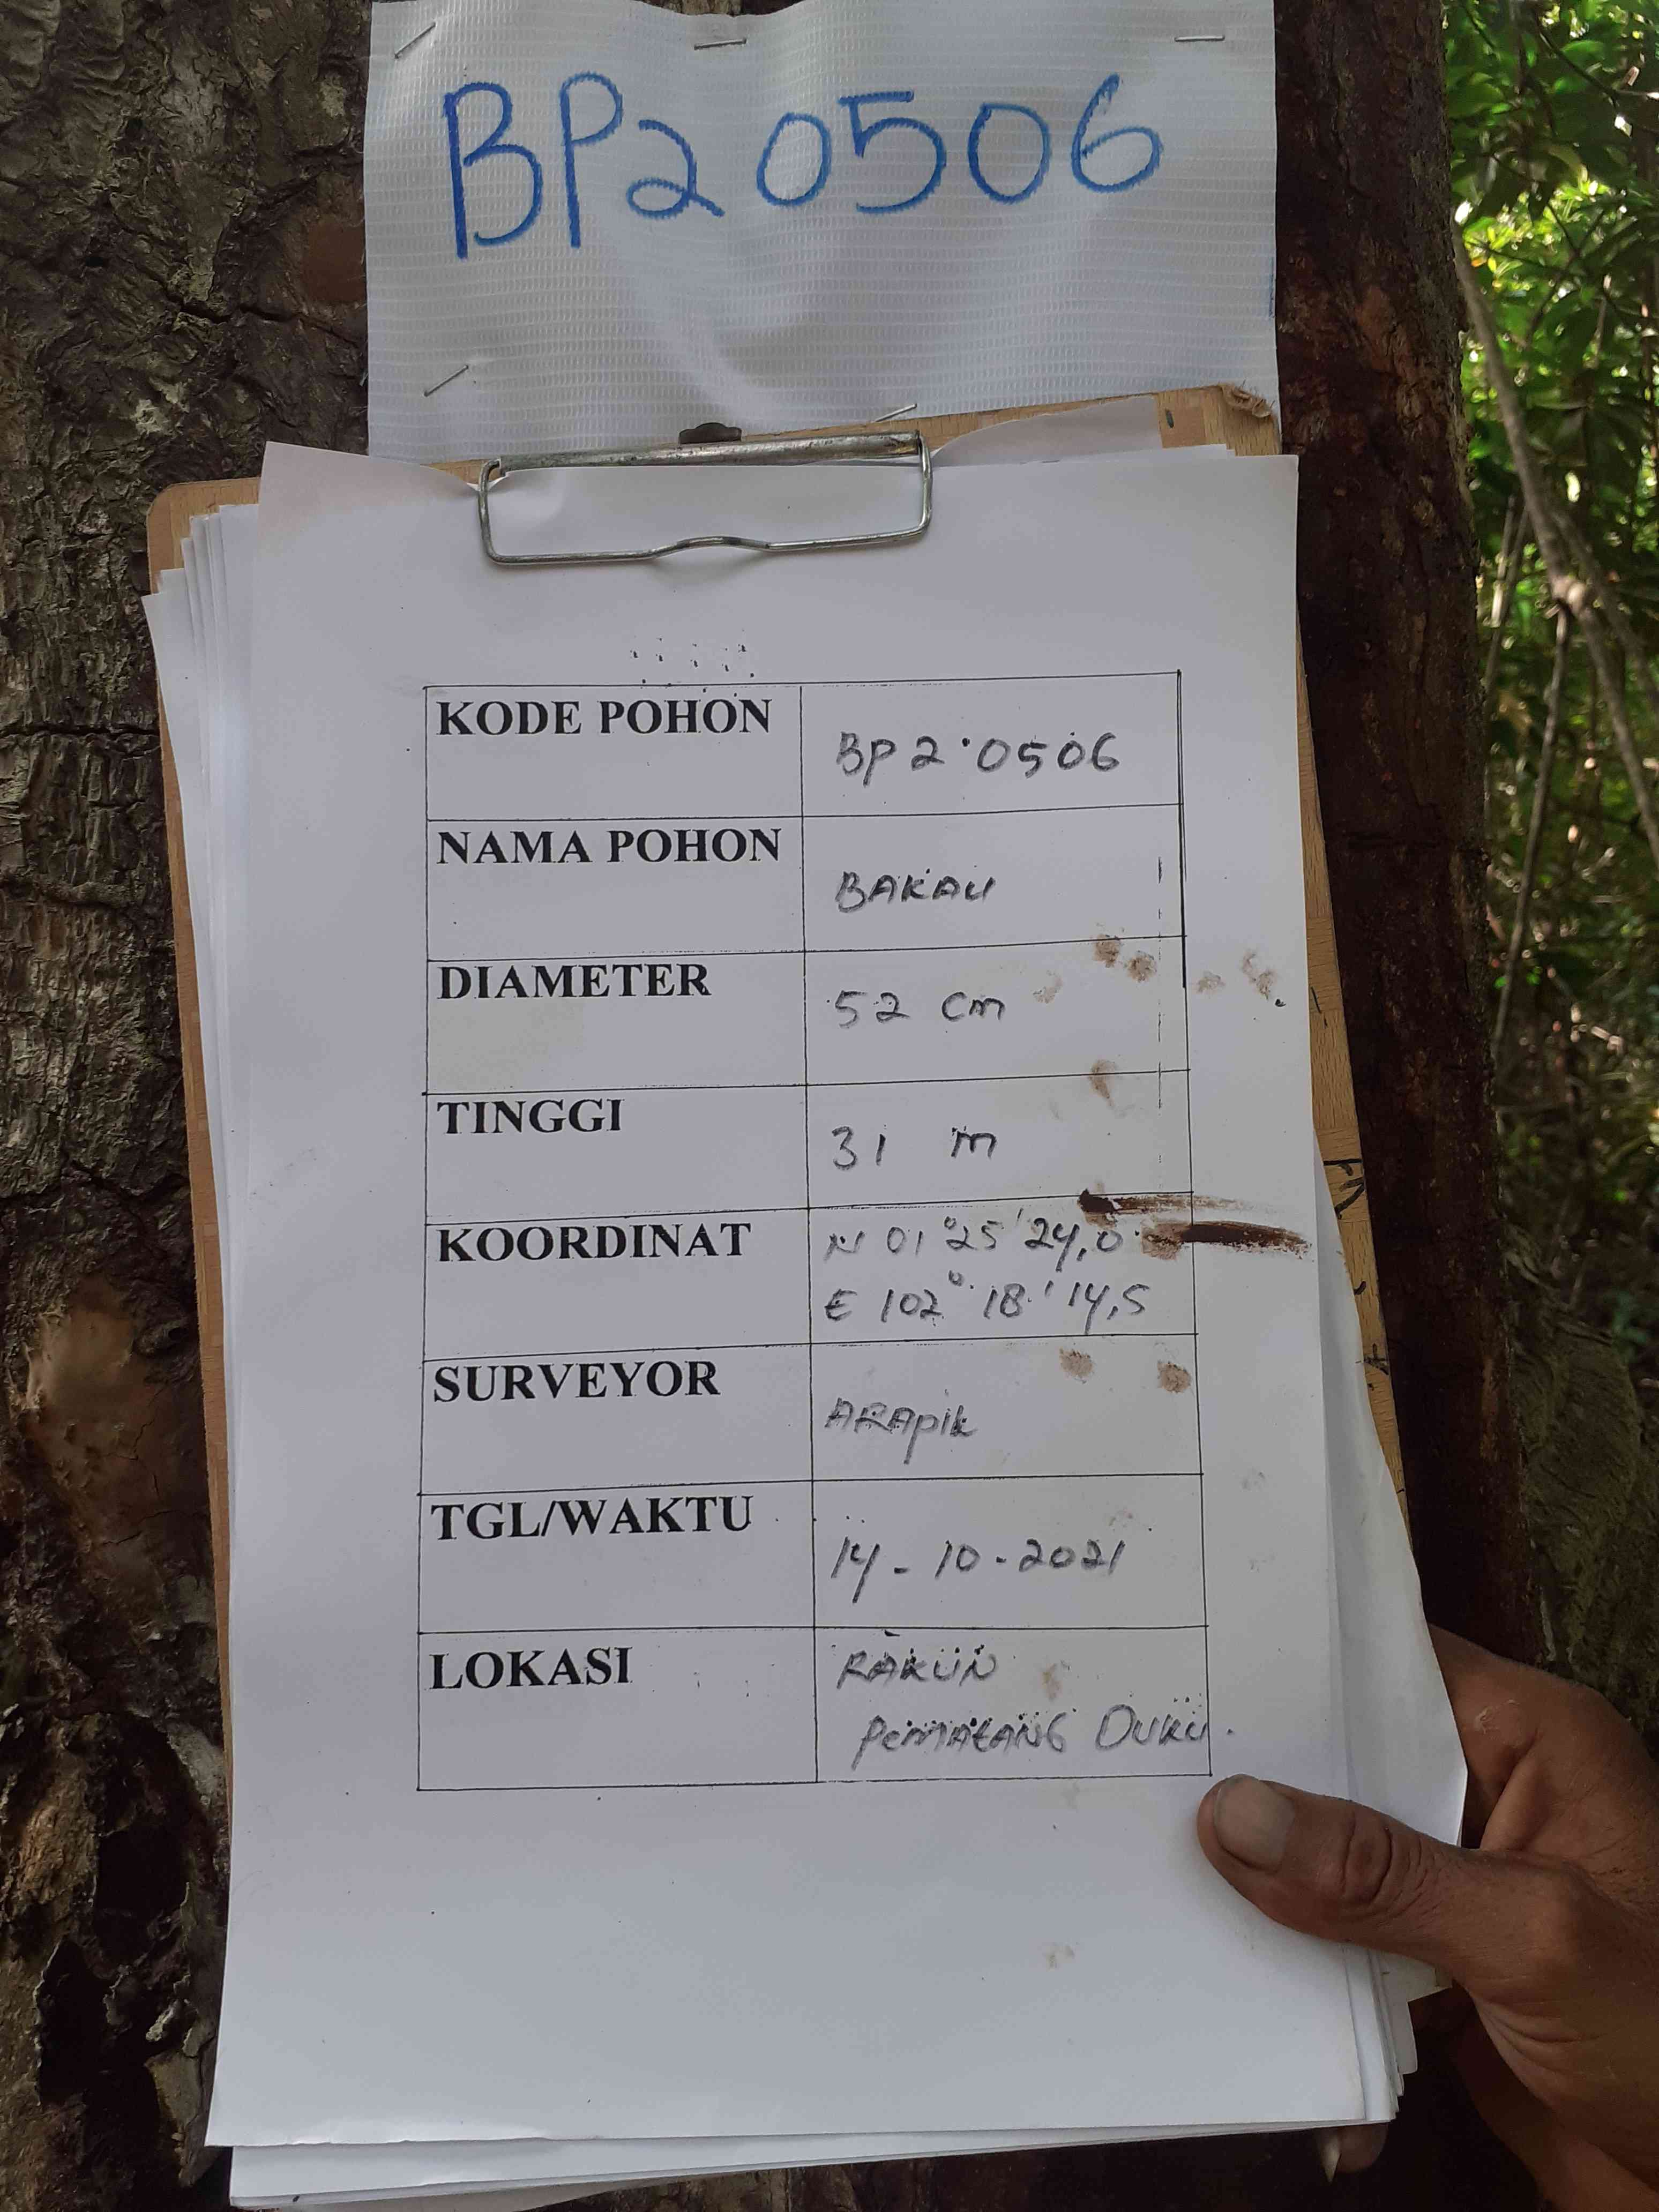 BP20506
KODE POHON
BP2.0506
NAMA POHON
BAKAU
DIAMETER
52 cm
TINGGI
31 m
KOORDINAT
N 01°25'24,0
E 102° 18' 14,5
SURVEYOR
ARApik
TGL/WAKTU
14-10-2021
LOKASI
RAKUN
PeMAtANG DUKU.